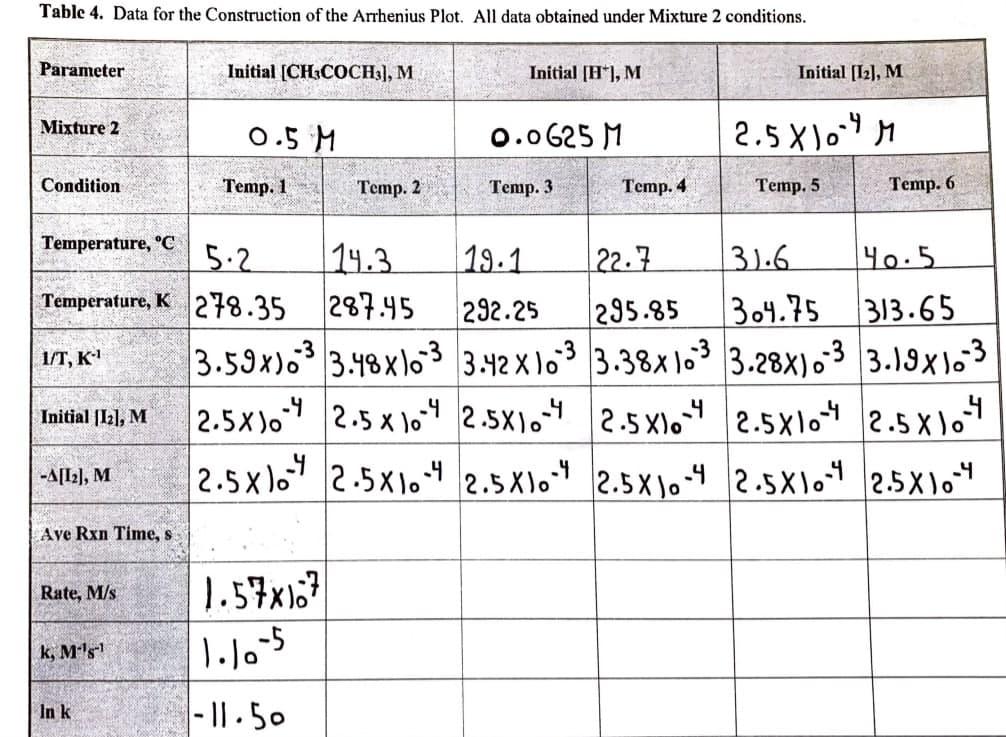 Table 4. Data for the Construction of the Arrhenius Plot. All data obtained under Mixture 2 conditions.
Parameter Initial [CH₃COCH₃], M Initial [H⁺], M Initial [I₂], M
Mixture 2 0.5 M 0.0625 M 2.5 X10⁻⁴ M
Condition Temp. 1 Temp. 2 Temp. 3 Temp. 4 Temp. 5 Temp. 6
Temperature, °C 5.2 14.3 19.1 22.7 31.6 40.5
Temperature, K 278.35 287.45 292.25 295.85 304.75 313.65
1/T, K⁻¹ 3.59x10⁻³ 3.48x10⁻³ 3.42X10⁻³ 3.38x10⁻³ 3.28X10⁻³ 3.19x10⁻³
Initial [I₂], M 2.5x10⁻⁴ 2.5x10⁻⁴ 2.5X10⁻⁴ 2.5X10⁻⁴ 2.5x10⁻⁴ 2.5x10⁻⁴
-Δ[I₂], M 2.5x10⁻⁴ 2.5X10⁻⁴ 2.5X10⁻⁴ 2.5X10⁻⁴ 2.5X10⁻⁴ 2.5X10⁻⁴
Ave Rxn Time, s
Rate, M/s 1.57x10⁻⁷
k, M⁻¹s⁻¹ 1.10⁻⁵
ln k -11.50